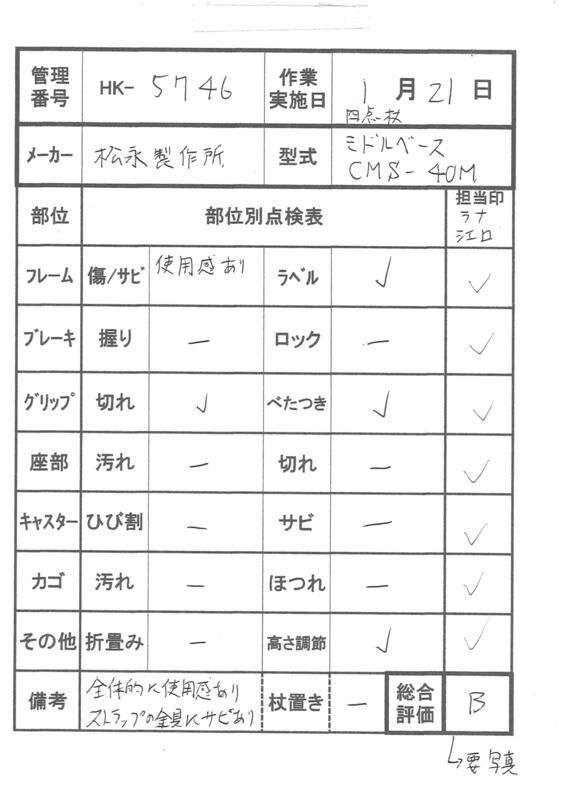 管理番号 HK- 5746 作業実施日 1月21日
四点杖
メーカー 松永製作所 型式 ミドルベース
CMS-40M
部位 部位別点検表 担当印
ラナ
江口
フレーム 傷/サビ 使用感あり ラベル ✓ ✓
ブレーキ 握り — ロック — ✓
グリップ 切れ ✓ べたつき ✓ ✓
座部 汚れ — 切れ — ✓
キャスター ひび割 — サビ — ✓
カゴ 汚れ — ほつれ — ✓
その他 折畳み — 高さ調節 ✓ ✓
備考 全体的に使用感あり
ストラップの金具にサビあり
杖置き — 総合評価 B
↳要写真